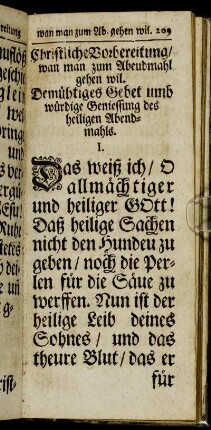 wan man zum Ab. gehen wil. 209
Christliche Vorbereitung/
wan man zum Abendmahl
gehen wil.
Demühtiges Gebet umb
würdige Geniessung des
heiligen Abend-
mahls.
I.
Das weiß ich/ O
allmächtiger
und heiliger GOtt!
Daß heilige Sachen
nicht den Hunden zu
geben/ noch die Per-
len für die Säue zu
werffen. Nun ist der
heilige Leib deines
Sohnes/ und das
theure Blut/ das er
für